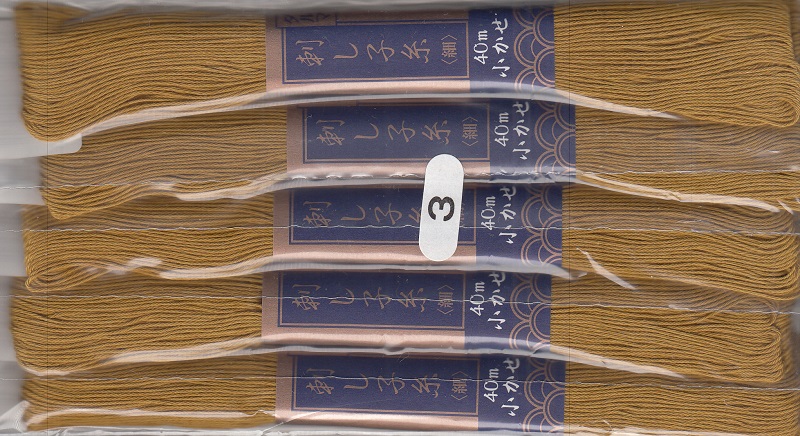 刺し子糸〈細〉
40m
小かせ
刺し子糸〈細〉
40m
小かせ
3
刺し子糸
40m
小かせ
刺し子糸〈細〉
40m
小かせ
刺し子糸〈細〉
40m
小かせ